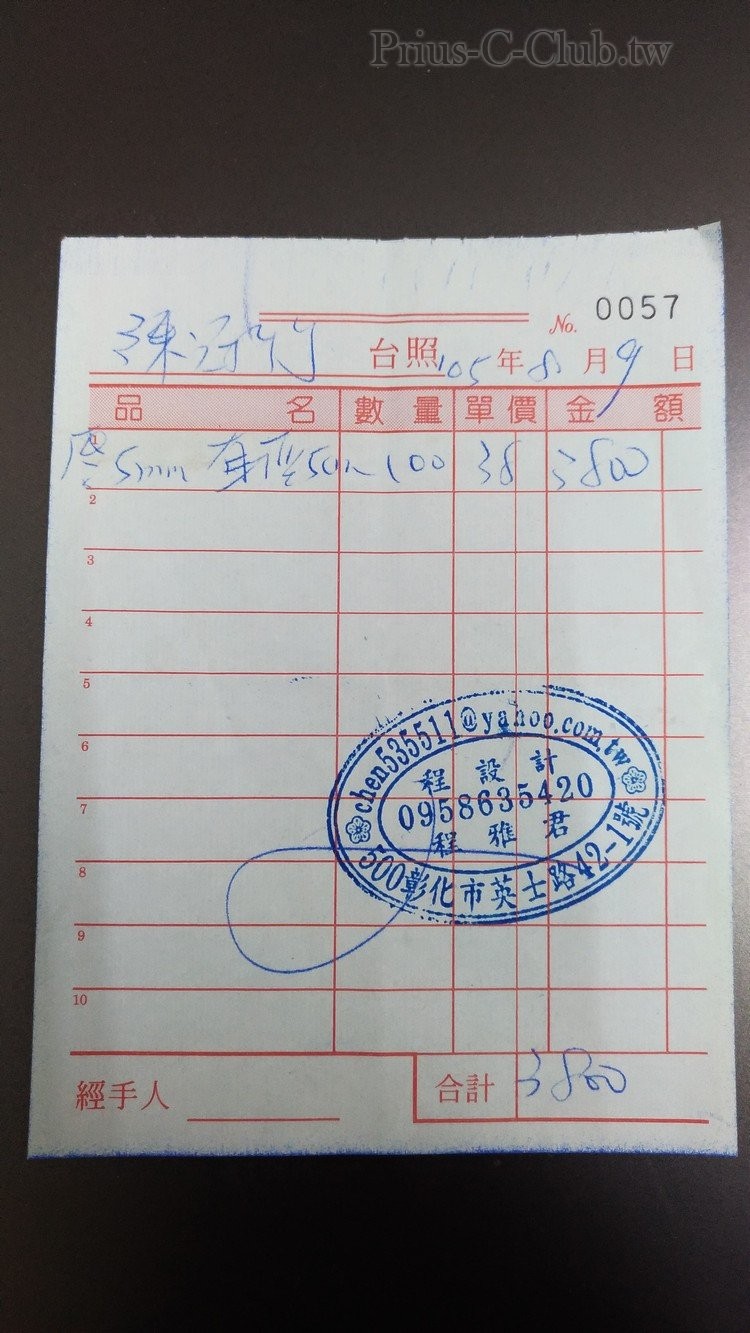 Prius-C-Club.tw
No. 0057
陳 台照 105年8月9日
品名 數量 單價 金額
1 厚5mm 直徑50 100 38 3800
2
3
4
5
6
7
8
9
10
chen535511@yahoo.com.tw
程設計
0958635420
程雅君
500彰化市英士路42-1號
經手人 合計 3800